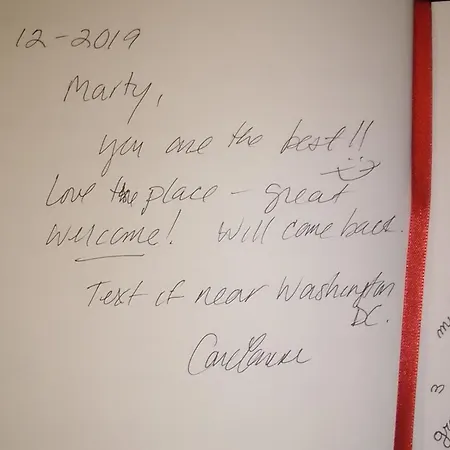 12-2019
Marty,
you are the best!!
Love the place - great
welcome! Will come back.
Text if near Washington
DC.